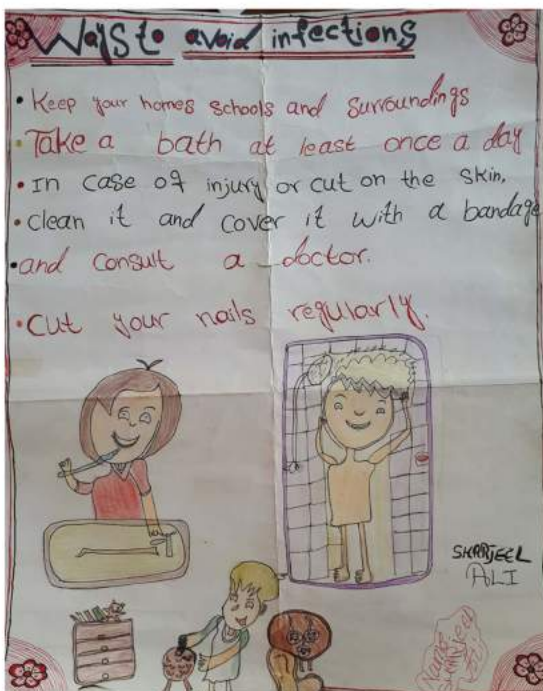 Ways to avoid infections
• Keep your homes schools and surroundings
• Take a bath at least once a day
• In case of injury or cut on the skin,
• clean it and cover it with a bandage
• and consult a doctor.
• cut your nails regularly.
SHARJEEL
ALI
Name